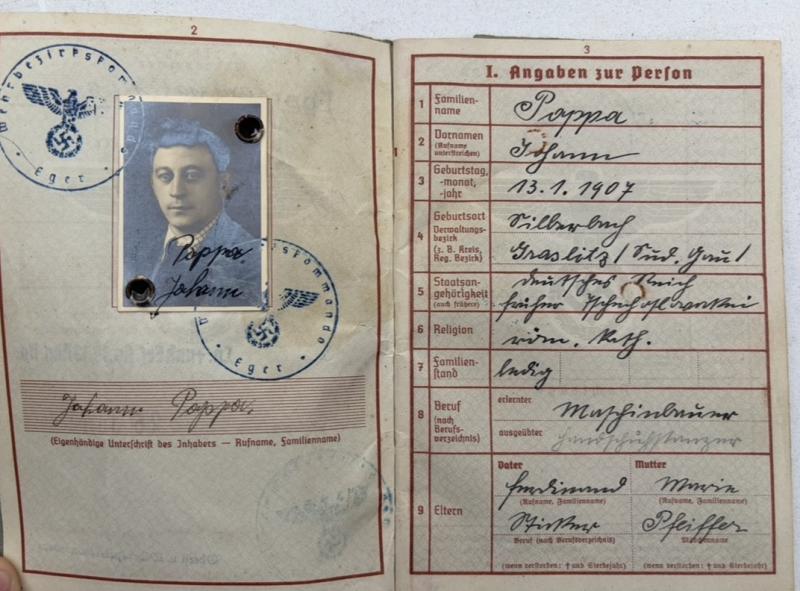 2
Wehrbezirkskommando
Eger
Pappa
Johann
Wehrbezirkskommando
Eger
Johann Pappa
(Eigenhändige Unterschrift des Inhabers — Rufname, Familienname)
3
I. Angaben zur Person
1 Familien-
name
Pappa
2 Vornamen
(Rufname
unterstreichen)
Johann
3 Geburtstag,
-monat,
-jahr
13.1.1907
4 Geburtsort
Verwaltungs-
bezirk
(z. B. Kreis,
Reg. Bezirk)
Silberbach
Graslitz / Sud. Gau /
5 Staatsan-
gehörigkeit
(auch frühere)
deutsches Reich
früher Tschechoslowakei
6 Religion
röm. Kath.
7 Familien-
stand
ledig
8 Beruf
(nach
Berufs-
verzeichnis)
erlernter
Maschinbauer
ausgeübter
Handschuhstanzer
9 Eltern
Vater
Mutter
Ferdinand
Marie
(Rufname, Familienname)
(Rufname, Familienname)
Sticker
Pfeiffer
Beruf (nach Berufsverzeichnis)
Mädchenname
(wenn verstorben: † und Sterbejahr)
(wenn verstorben: † und Sterbejahr)